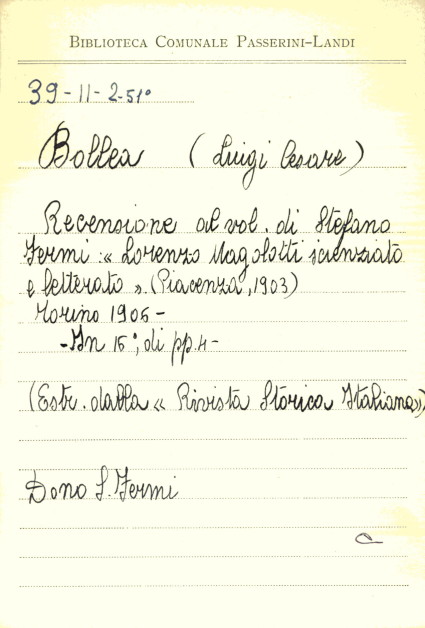 BIBLIOTECA COMUNALE PASSERINI-LANDI
39-11-2-51°
Bollea (Luigi Cesare)
Recensione al vol. di Stefano
Fermi: « Lorenzo Magolotti scienziato
e letterato ». (Piacenza, 1903)
Torino 1905 -
- In 15°, di pp. 4 -
(Estr. dalla « Rivista Storica Italiana»)
Dono S. Fermi